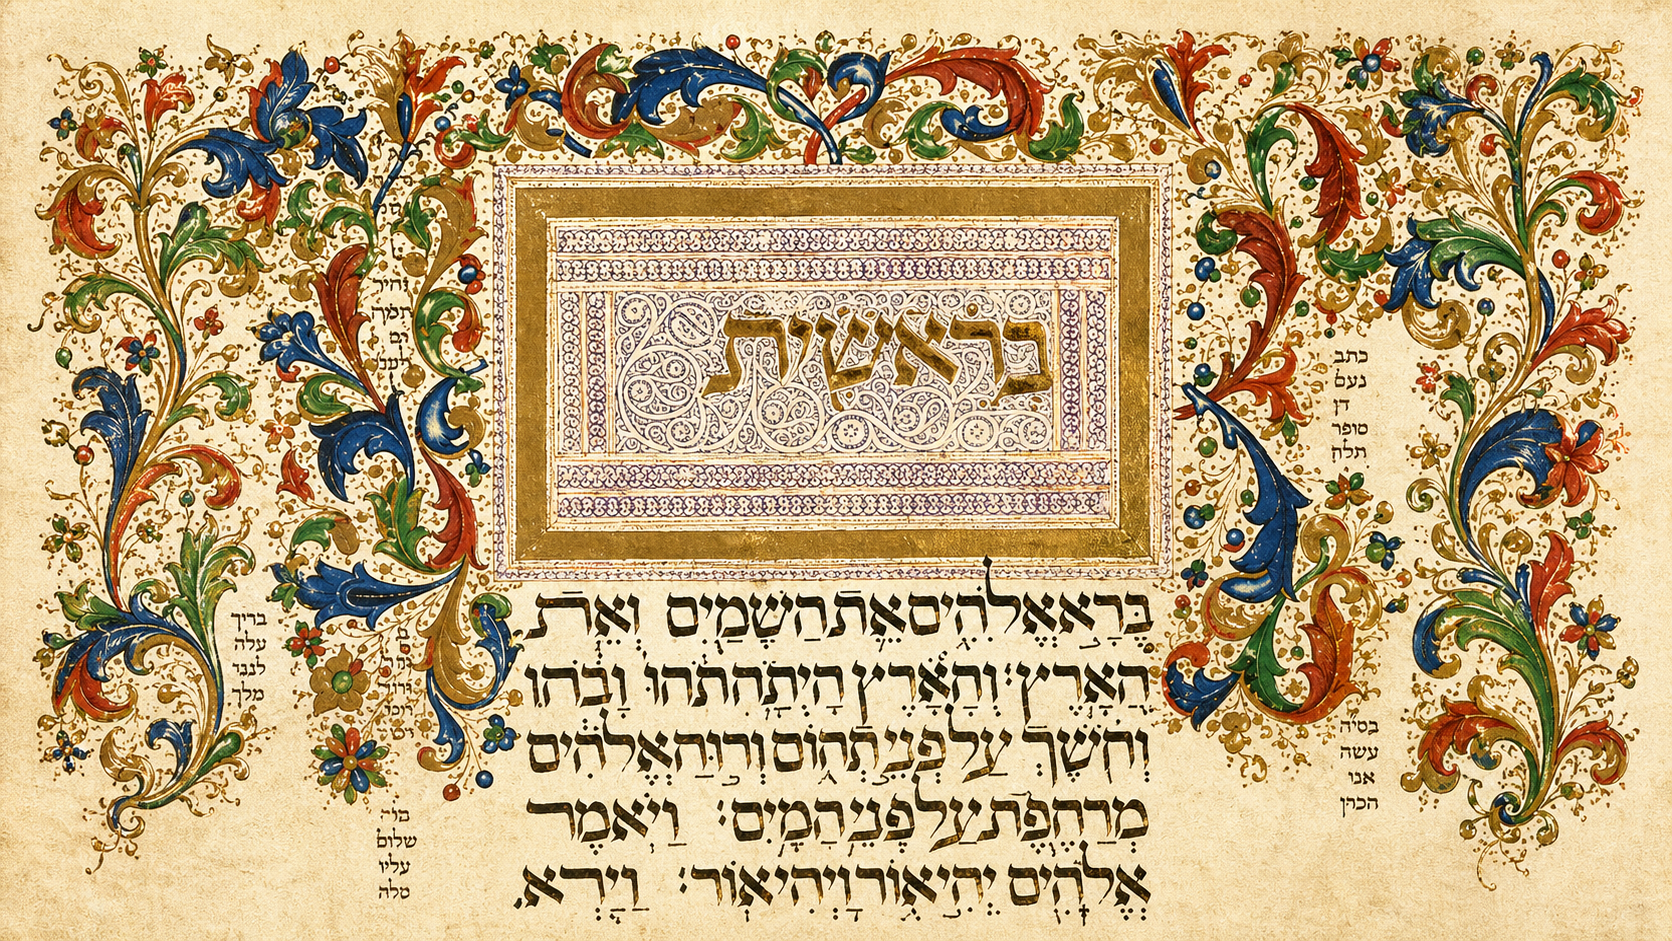 בראשית
בָּרָא אֱלֹהִים אֵת הַשָּׁמַיִם וְאֵת
הָאָרֶץ׃ וְהָאָרֶץ הָיְתָה תֹהוּ וָבֹהוּ
וְחֹשֶׁךְ עַל פְּנֵי תְהוֹם וְרוּחַ אֱלֹהִים
מְרַחֶפֶת עַל פְּנֵי הַמָּיִם׃ וַיֹּאמֶר
אֱלֹהִים יְהִי אוֹר וַיְהִי אוֹר׃ וַיַּרְא
כתב
נעם
דן
סופר
תלה
עשה
אנו
בריך
עלה
לנגד
מלך
שלום
עליו
סלה